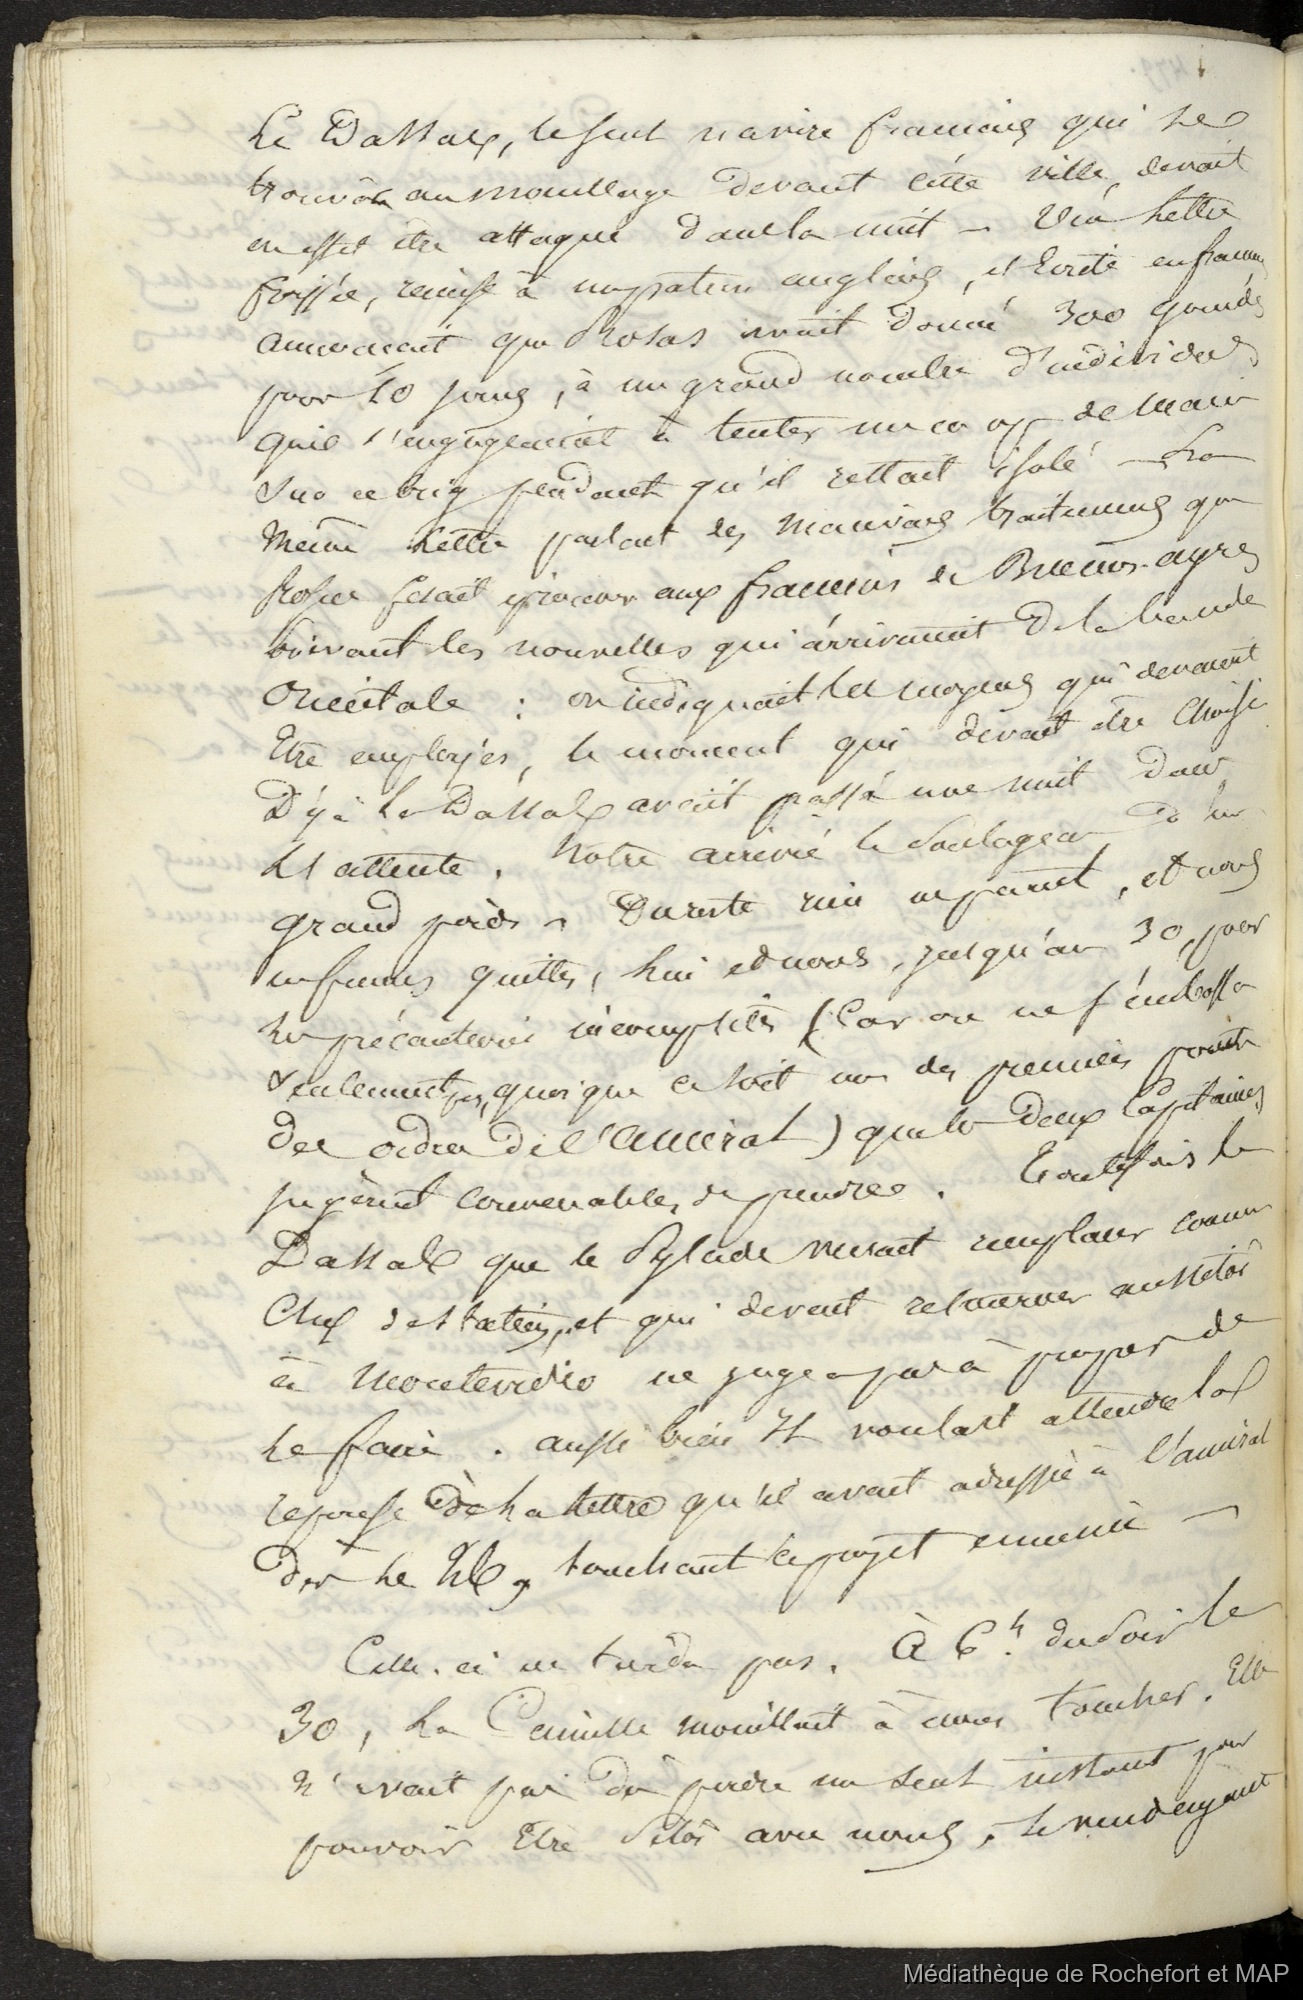 Le Dassas, le seul navire français qui se
trouvâ au mouillage devant cette ville, devait
en effet être attaqué dans la nuit – Une lettre
froissée, remise à un patron anglais, et écrite en français
annonçait que Rosas avait donné 300 gourdes
pour 10 jours, à un grand nombre d'individus
qui s'engageaient à tenter un coup de main
sur ce brig pendant qu'il restait isolé – La
même lettre parlait des mauvais traitements que
Rosas fesait éprouver aux français de Buenos-ayres
suivant les nouvelles qui arrivaient de la bande
Orientale : on indiquait les moyens qui devaient
Etre employés, le moment qui devait être choisi
Déjà le Dassas avait passé une nuit dans
l'attente. Notre arrivée le soulagea d'un
grand poids – Du reste rien ne parut, et nous
en fumes quittes, lui et nous, jusqu'au 30, pour
les précautions incomplètes (Car on ne s'embossa
seulement pas, quoique ce soit un des premiers points
des ordres de l'amiral) que les deux Capitaines
jugèrent convenables de prendre. Toutefois le
Dassas que le Pylade venait remplacer comme
Chef de station, et qui devait retourner aussitôt
à Montevideo ne jugea pas à propos de
le faire. aussi bien Il voulait attendre la
reponse de la lettre qu'il avait adressée à l'amiral
dès le touchant le projet ennemi –
Celle-ci ne tarda pas. À 6h. du soir le
30, la Camille mouillait à nous toucher. Elle
n'avait pas dû perdre un seul instant pour
pouvoir Etre sitôt avec nous,